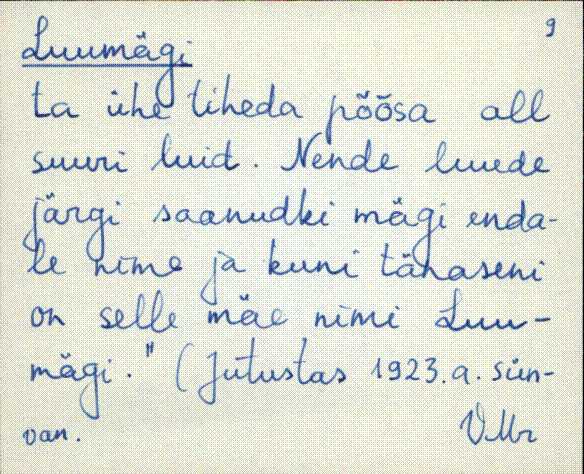 9
Luumägi
ta ühe tiheda põõsa all
suuri luid. Nende luude
järgi saanudki mägi enda-
le nime ja kuni tänaseni
on selle mäe nimi Luu-
mägi." (Jutustas 1923.a. sün-
van. VMr